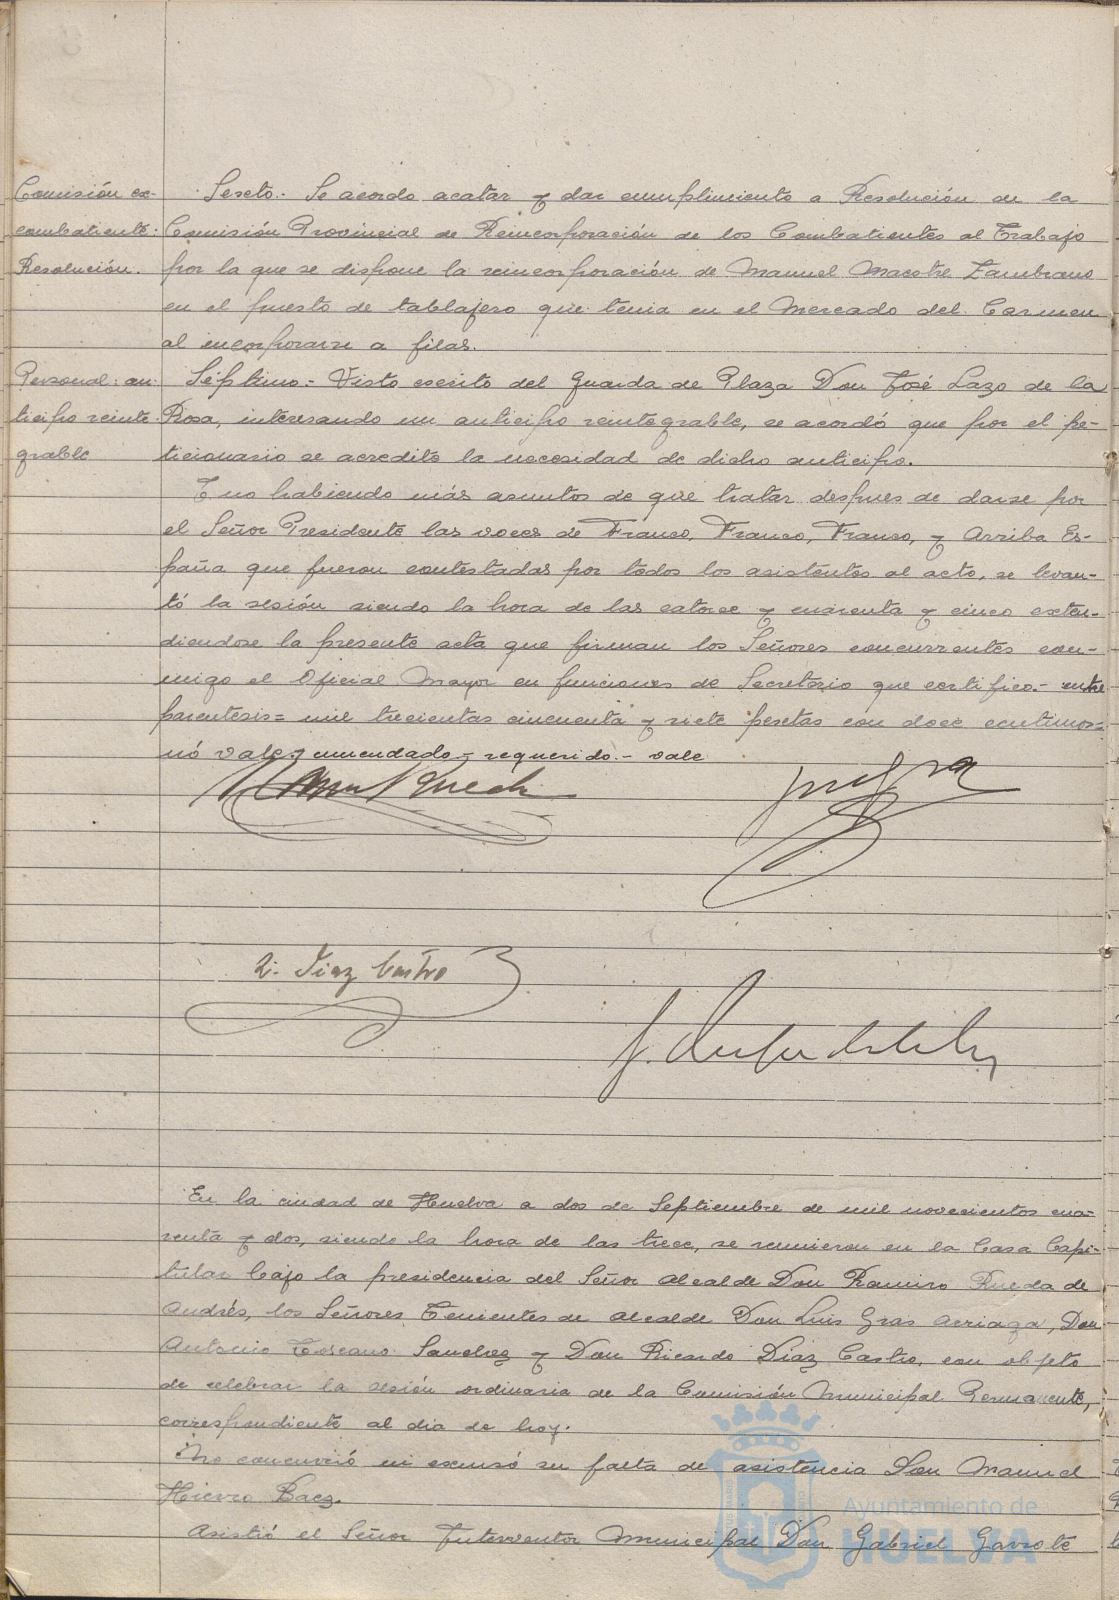 Comisión ex-
combatiente:
Resolución.
Sexto.- Se acordo acatar y dar cumplimiento a Resolución de la
Comisión Provincial de Reincorporación de los Combatientes al Trabajo
por la que se dispone la reincorporación de Manuel Macotre Zambrano
en el puesto de tablajero que tenia en el Mercado del Carmen
al incorporarse a filas.
Personal: an-
ticipo reinte-
grable
Séptimo.- Visto escrito del Guarda de Plaza Don José Lazo de la
Rosa, interesando un anticipo reintegrable, se acordó que por el pe-
ticionario se acredite la necesidad de dicho anticipo.
Y no habiendo más asuntos de que tratar despues de darse por
el Señor Presidente las voces de Franco, Franco, Franco, y Arriba Es-
paña que fueron contestadas por todos los asistentes al acto, se levan-
tó la sesión siendo la hora de las catorce y cuarenta y cinco exten-
diendose la presente acta que firman los Señores concurrentes con-
migo el Oficial Mayor en funciones de Secretario que certifico.- entre
parentesis= mil trecientas cincuenta y siete pesetas con doce centimos=
nó vale, enmendado - requerido.- vale
R. Diaz Castro
En la ciudad de Huelva a dos de Septiembre de mil novecientos cua-
renta y dos, siendo la hora de las trece, se reunieron en la Casa Capi-
tular bajo la presidencia del Señor Alcalde Don Ramiro Rueda de
Andrés, los Señores Tenientes de Alcalde Don Luis Gras Arriaga, Don
Antonio Toscano Sanchez y Don Ricardo Díaz Castro, con objeto
de celebrar la sesión ordinaria de la Comisión Municipal Permanente,
correspondiente al dia de hoy.
No concurrió ni excusó su falta de asistencia Don Manuel
Hierro Baez.
Asistió el Señor Interventor Municipal Don Gabriel Garrote
Ayuntamiento de
HUELVA